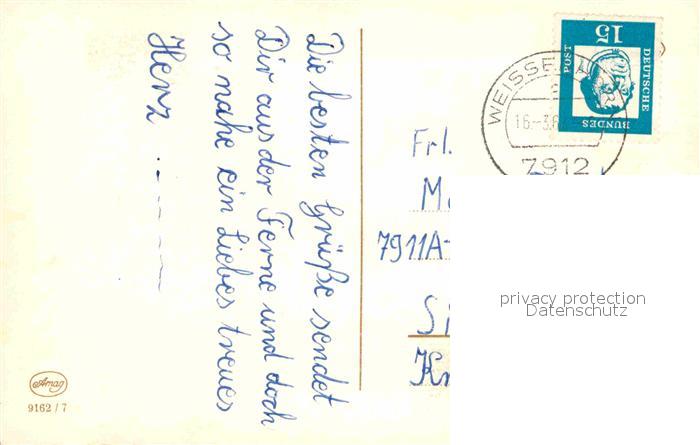 Die besten Grüße sendet
Dir aus der Ferne und doch
so nahe ein Liebes treues
Herz . . — — —
15
DEUTSCHE
BUNDES
POST
WEISSE
16.-3.6
7912
Frl.
M
7911A-
S
Kr
privacy protection
Datenschutz
Amag
9162 / 7